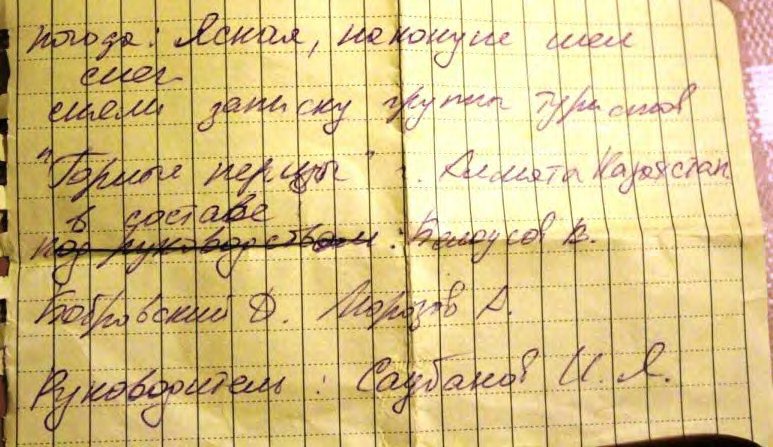 погода: Ясная, накануне шел
снег
сняли записку группы туристов
"Горные перцы" г. Алмата Казахстан
в составе
под руководством: Белоусов В.
Бобровский Д. Морозов А.
Руководитель: Саубанов И. Я.